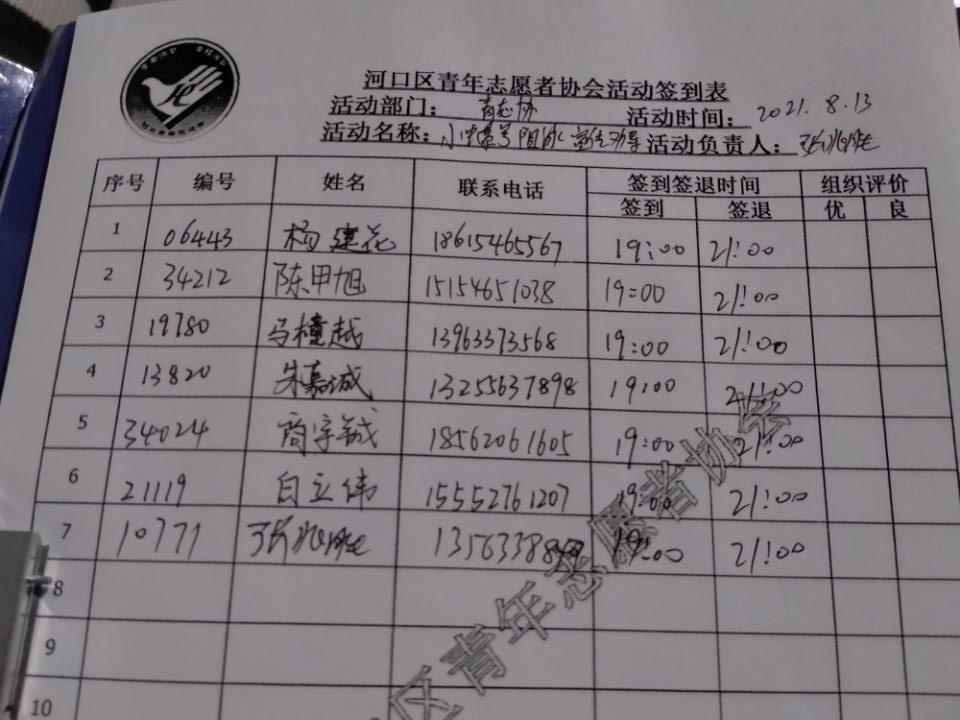 河口区青年志愿者协会活动签到表
活动部门： 青志协 活动时间： 2021. 8. 13
活动名称： 活动负责人：
序号 编号 姓名 联系电话 签到签退时间 组织评价
签到 签退 优 良
1 06443 杨建花 18615465567 19:00 21:00
2 34212 陈甲旭 15154651038 19:00 21:00
3 19780 马橦越 13963373568 19:00 21:00
4 13820 朱嘉诚 13255637898 19:00 21:00
5 34024 商宇诚 18562061605 19:00 21:00
6 21119 白立伟 15552761207 19:00 21:00
7 10771 19:00 21:00
8
9
10
区青年志愿者协会